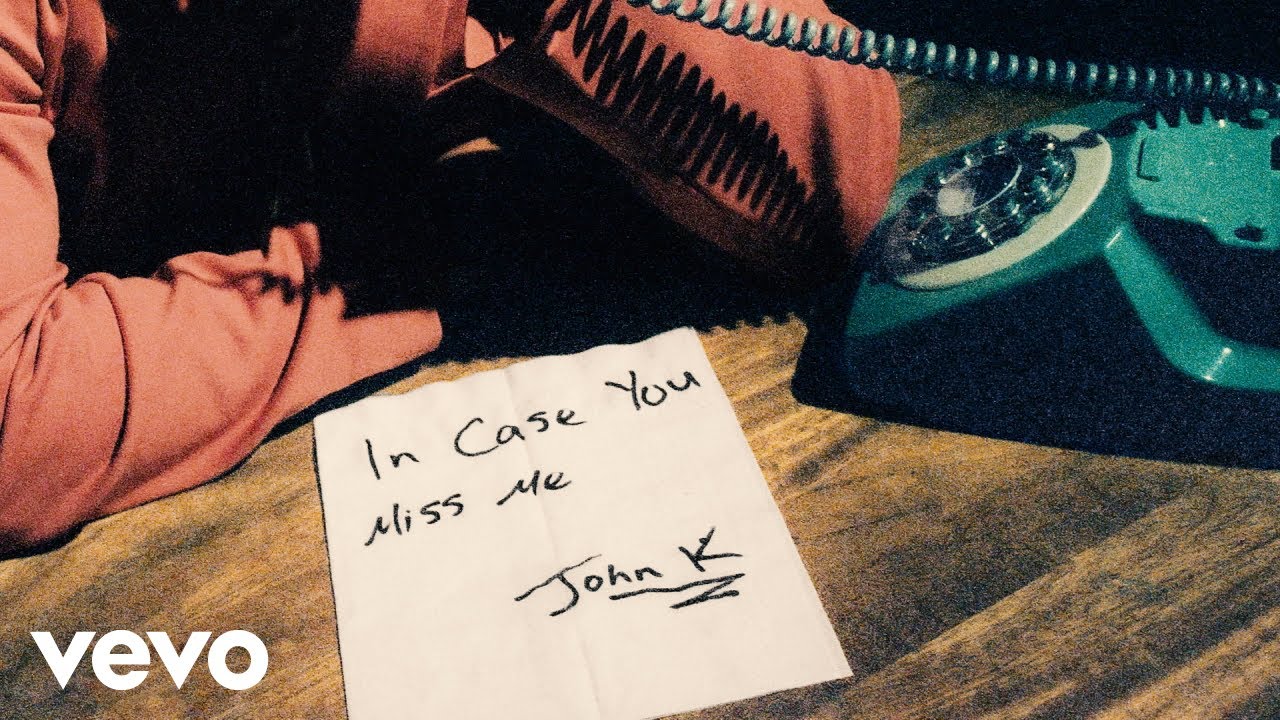 In Case You
Miss Me
John K
vevo